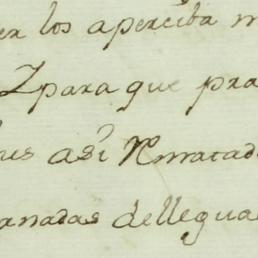 er los aperciba m
Zpara que pra
us asi Rematad
anadas dellegua